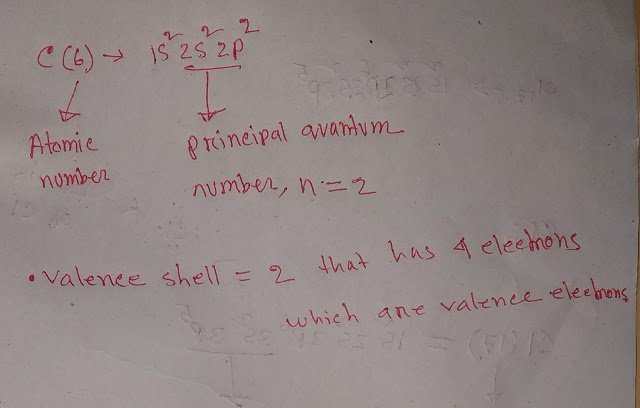 C (6) → 1s² 2s² 2p²
Atomic number
principal quantum number, n = 2
• valence shell = 2 that has 4 electrons
which are valence electrons